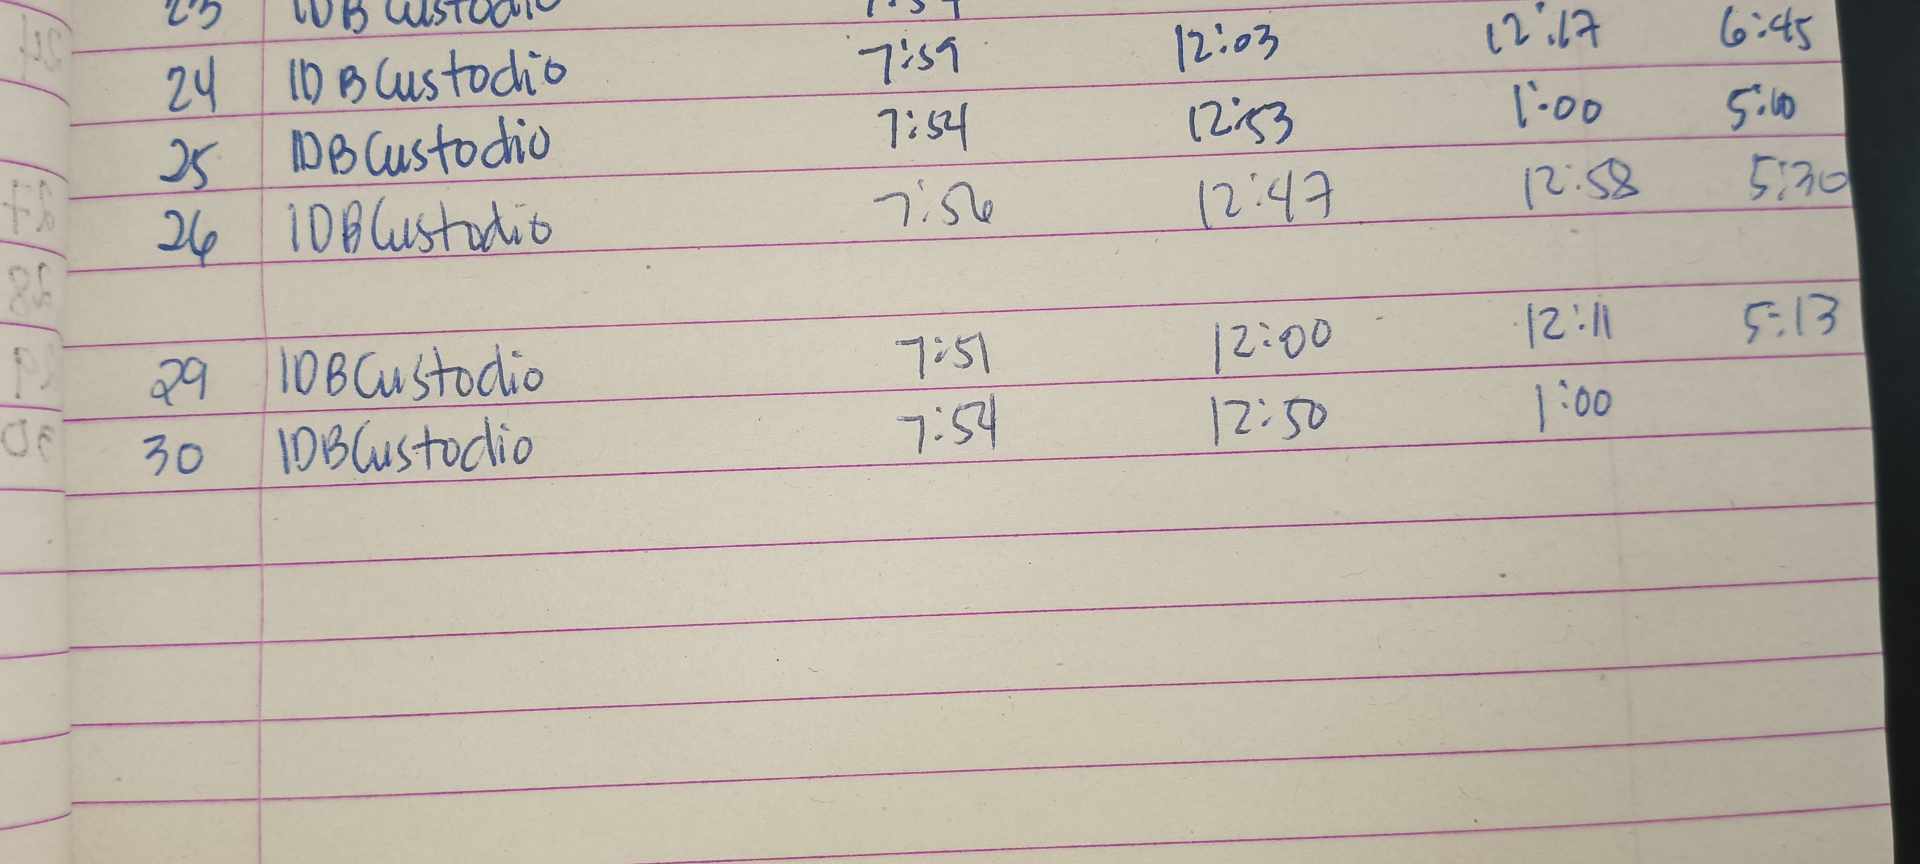 23 IDBCustodio 7:54
24 IDBCustodio 7:59 12:03 12:17 6:45
25 IDBCustodio 7:54 12:53 1:00 5:10
26 IDBCustodio 7:56 12:47 12:58 5:30
29 IDBCustodio 7:51 12:00 12:11 5:13
30 IDBCustodio 7:54 12:50 1:00